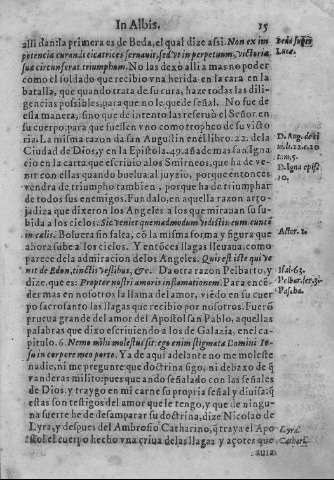 In Albis.
15
alli dan: la primera es de Beda, el qual dize assi. Non ex im
potencia curandi cicatrices seruauit, sed vt in perpetuum, victoriæ
suæ circunferat triumphum. No las dexò alli a mas no poder
como el soldado que recibio vna herida en la cara en la
batalla, que quando trata de su cura, haze todas las dili
gencias possibles, para que no le quede señal. No fue de
essa manera, sino que de intento las reseruò el Señor, en
su cuerpo, para que fuessen vno como tropheo de su victo
ria. La misma razon da san Augustin en el libro. 22. de la
Ciudad de Dios, y en la Epistola. 49. añade mas san. Igna
cio en la carta que escriuio alos Smirneos, que ha de ve
nir con ellas quando buelua al juyzio, porque entonces
vendra de triumpho tambien, porque ha de triumphar
de todos sus enemigos. Fundalo, en aquella razon arro-
jadiza que dixeron los Angeles a los que mirauan su su
bida a los cielos. Sic veniet quemadmodum vidistis eum euntẽ
in cælis. Boluera sin falsa, cõ la misma forma y figura que
ahora sube a los cielos. Y entõces llagas lleuaua, como
parece dela admiracion delos Angeles. Quis est iste qui ve
nit de Edon, tinctis vestibus, &c. Da otra razon Pelbarto, y
dize, que es: Propter nostri amoris inflamationem. Para encẽ
der mas en nosotros la llama del amor, viẽdo en su cuer
po sacrosanto las llagas que recibio por nosotros. Fuerõ
prueua grande del amor del Apostol san Pablo, aquellas
palabras que dixo escriuiendo a los de Galazia, en el ca
pitulo. 6. Nemo mihi molestus sit: ego enim stigmata Domini Ie-
su in corpore meo porto. Ya de aqui adelante no me moleste
nadie, ni me pregunte que doctrina sigo, ni debaxo de q̃
vanderas milito: pues que ando señalado con las señales
de Dios, y traygo en mi carne su propria señal y diuisa: q̃
estas son testigos del amor que le tengo, y que de ningu
na suerte he de desamparar su doctrina, dize Nicolao de
Lyra, y despues del Ambrosio Catharino, q̃ traya el Apo
stol el cuerpo hecho vna criua de llagas y açotes que
Beda super
Lucæ.
D. Aug. de ci
10.
Actor. 1.
Isai. 63.
Pelbar. ser. 3.
Pascha.
Lyra.
Cathari.